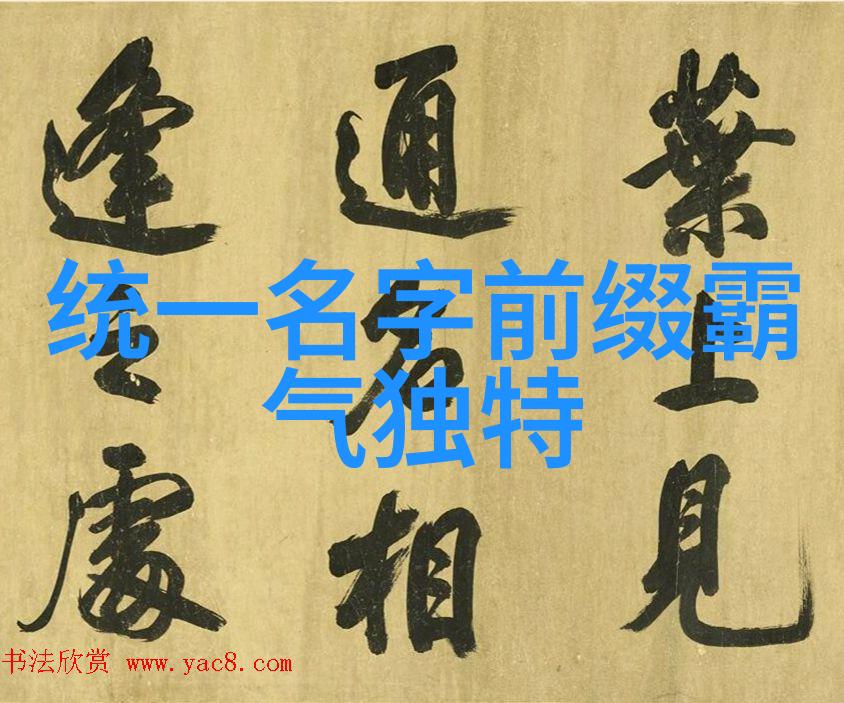 葉上見
通名相
逢之處
统一名字前缀霸
气独特
书法欣赏 www.yac8.com